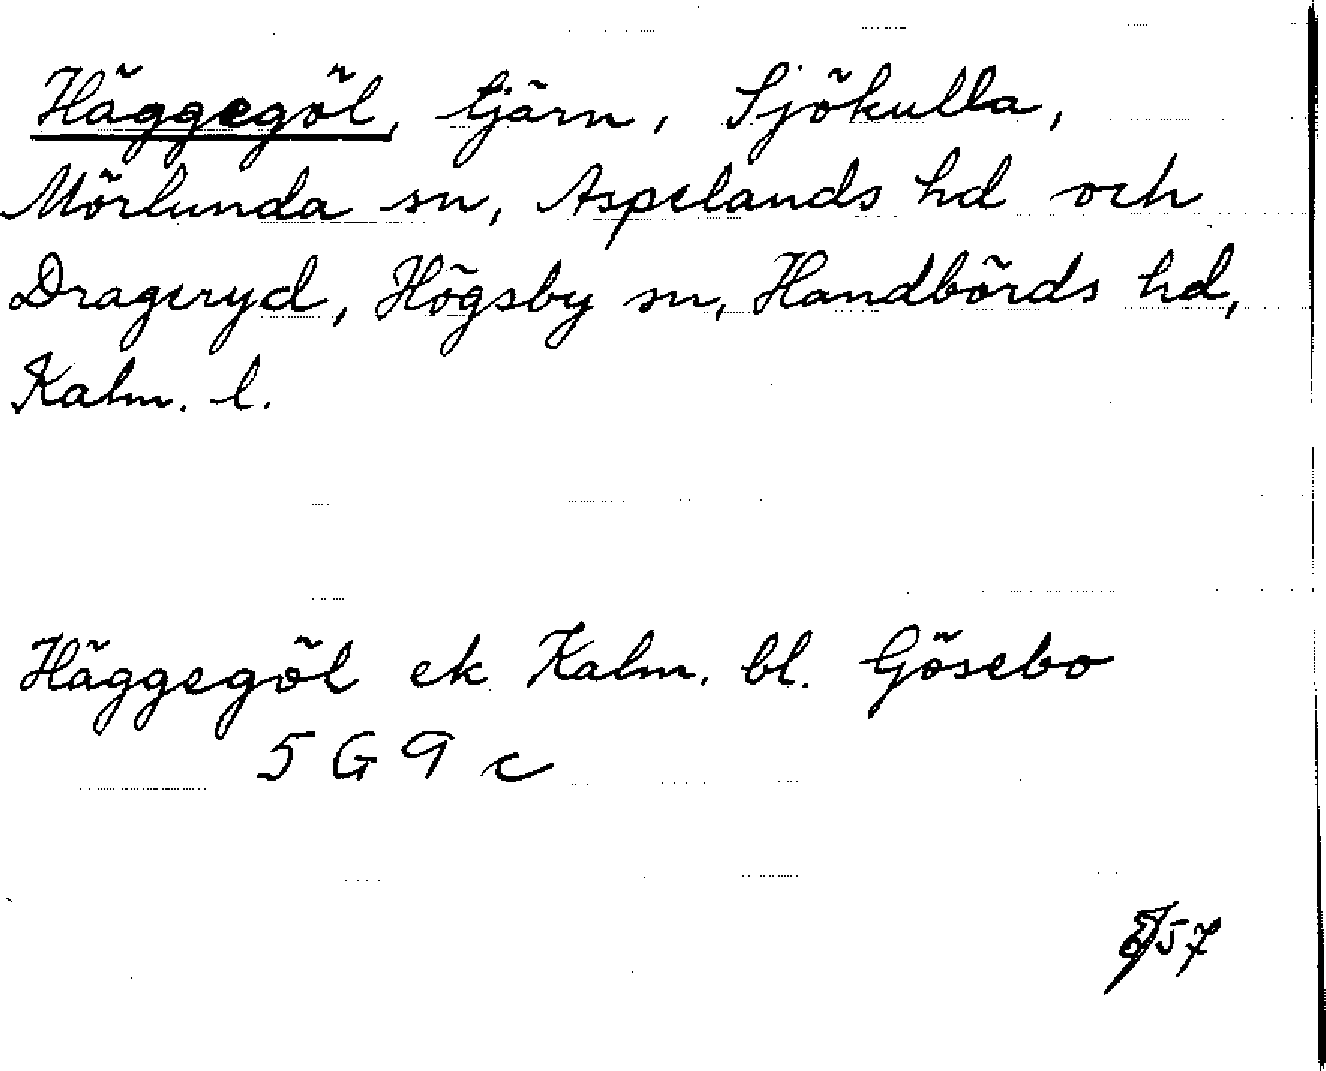 Häggegöl, tjärn, Sjökulla,
Mörlunda sn, Aspelands hd och
Drageryd, Högsby sn, Handbörds hd,
Kalm. l.
Häggegöl ek Kalm. bl. Gösebo
5 G 9 c
57